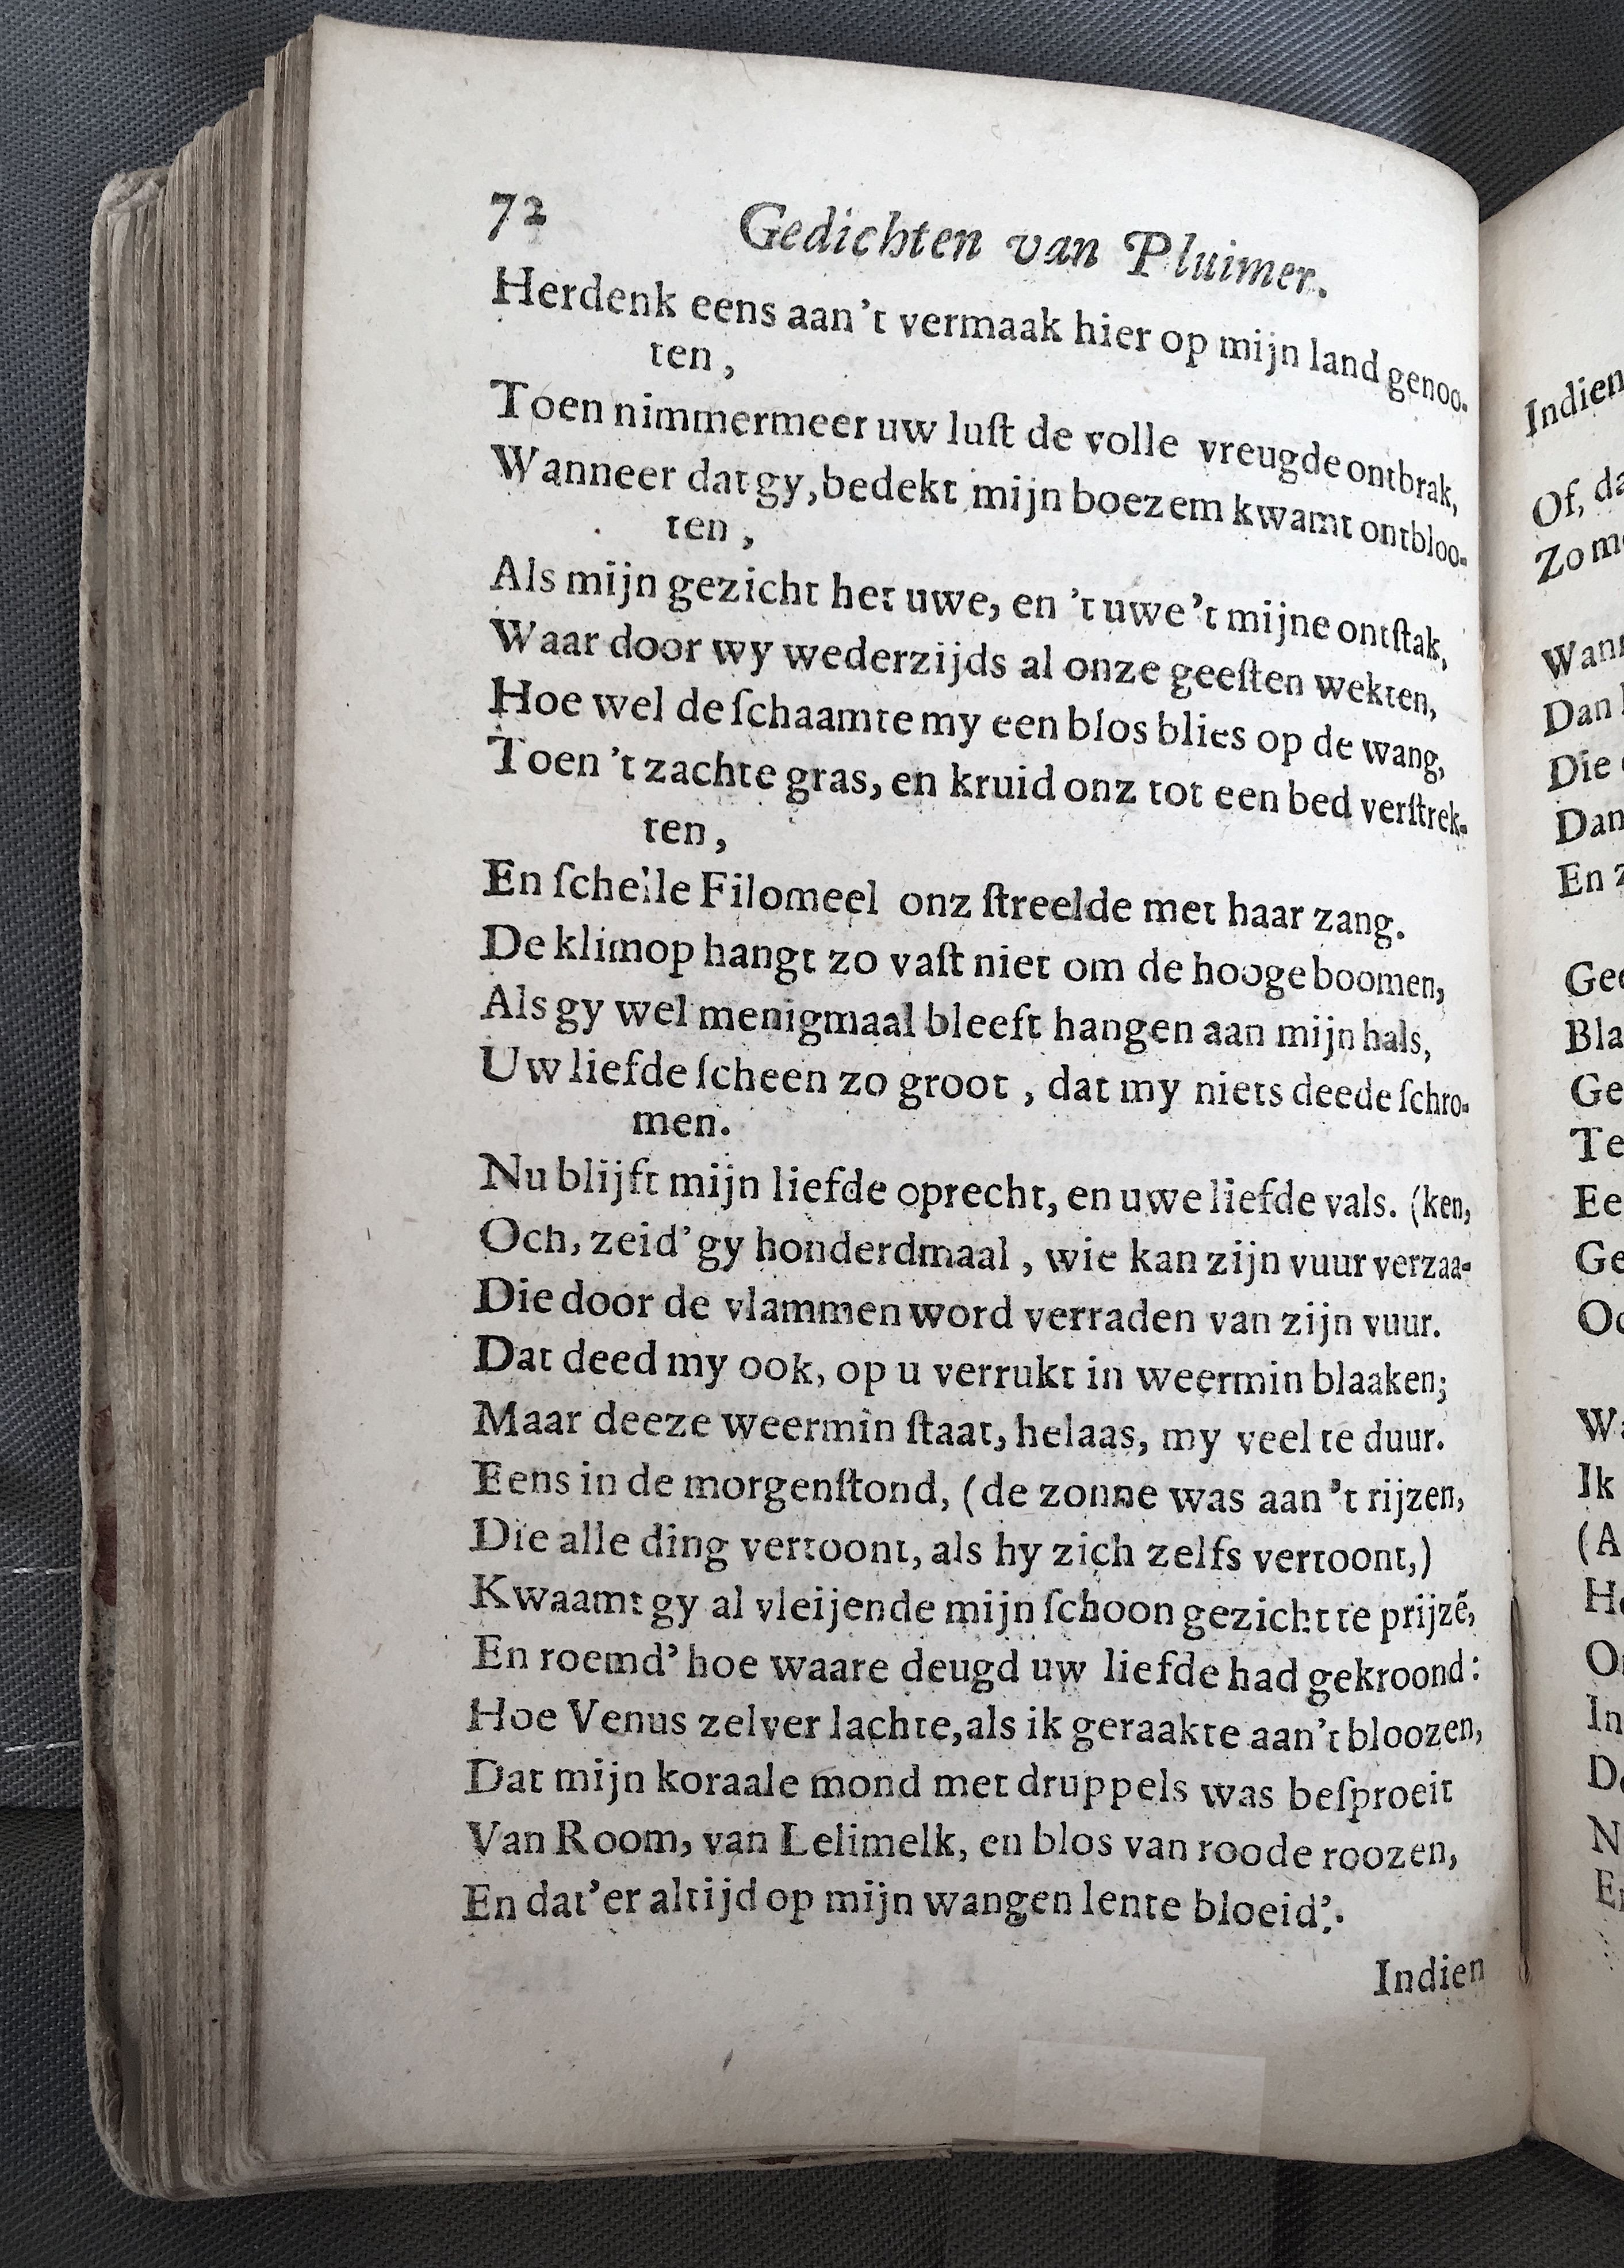 72 Gedichten van Pluimer.
Herdenk eens aan 't vermaak hier op mijn land genoo-
ten,
Toen nimmermeer uw luſt de volle vreugde ontbrak,
Wanneer dat gy, bedekt mijn boezem kwamt ontbloo-
ten,
Als mijn gezicht het uwe, en 't uwe 't mijne ontſtak,
Waar door wy wederzijds al onze geeſten wekten,
Hoe wel de ſchaamte my een blos blies op de wang,
Toen 't zachte gras, en kruid onz tot een bed verſtrek-
ten,
En ſchelle Filomeel onz ſtreelde met haar zang.
De klimop hangt zo vaſt niet om de hooge boomen,
Als gy wel menigmaal bleeft hangen aan mijn hals,
Uw liefde ſcheen zo groot, dat my niets deede ſchro-
men.
Nu blijft mijn liefde oprecht, en uwe liefde vals. (ken,
Och, zeid' gy honderdmaal, wie kan zijn vuur verzaa-
Die door de vlammen word verraden van zijn vuur.
Dat deed my ook, op u verrukt in weermin blaaken;
Maar deeze weermin ſtaat, helaas, my veel te duur.
Eens in de morgenſtond, (de zonne was aan 't rijzen,
Die alle ding vertoont, als hy zich zelfs vertoont,)
Kwaamt gy al vleijende mijn ſchoon gezicht te prijzẽ,
En roemd' hoe waare deugd uw liefde had gekroond:
Hoe Venus zelver lachte, als ik geraakte aan't bloozen,
Dat mijn koraale mond met druppels was beſproeit
Van Room, van Lelimelk, en blos van roode roozen,
En dat'er altijd op mijn wangen lente bloeid'.
Indien
Indien
Of, da
Zo m
Wan
Dan
Die
Dan
En z
Gee
Bla
Ge
Te
Ee
Ge
Oc
Wa
Ik
(A
He
In
De
N